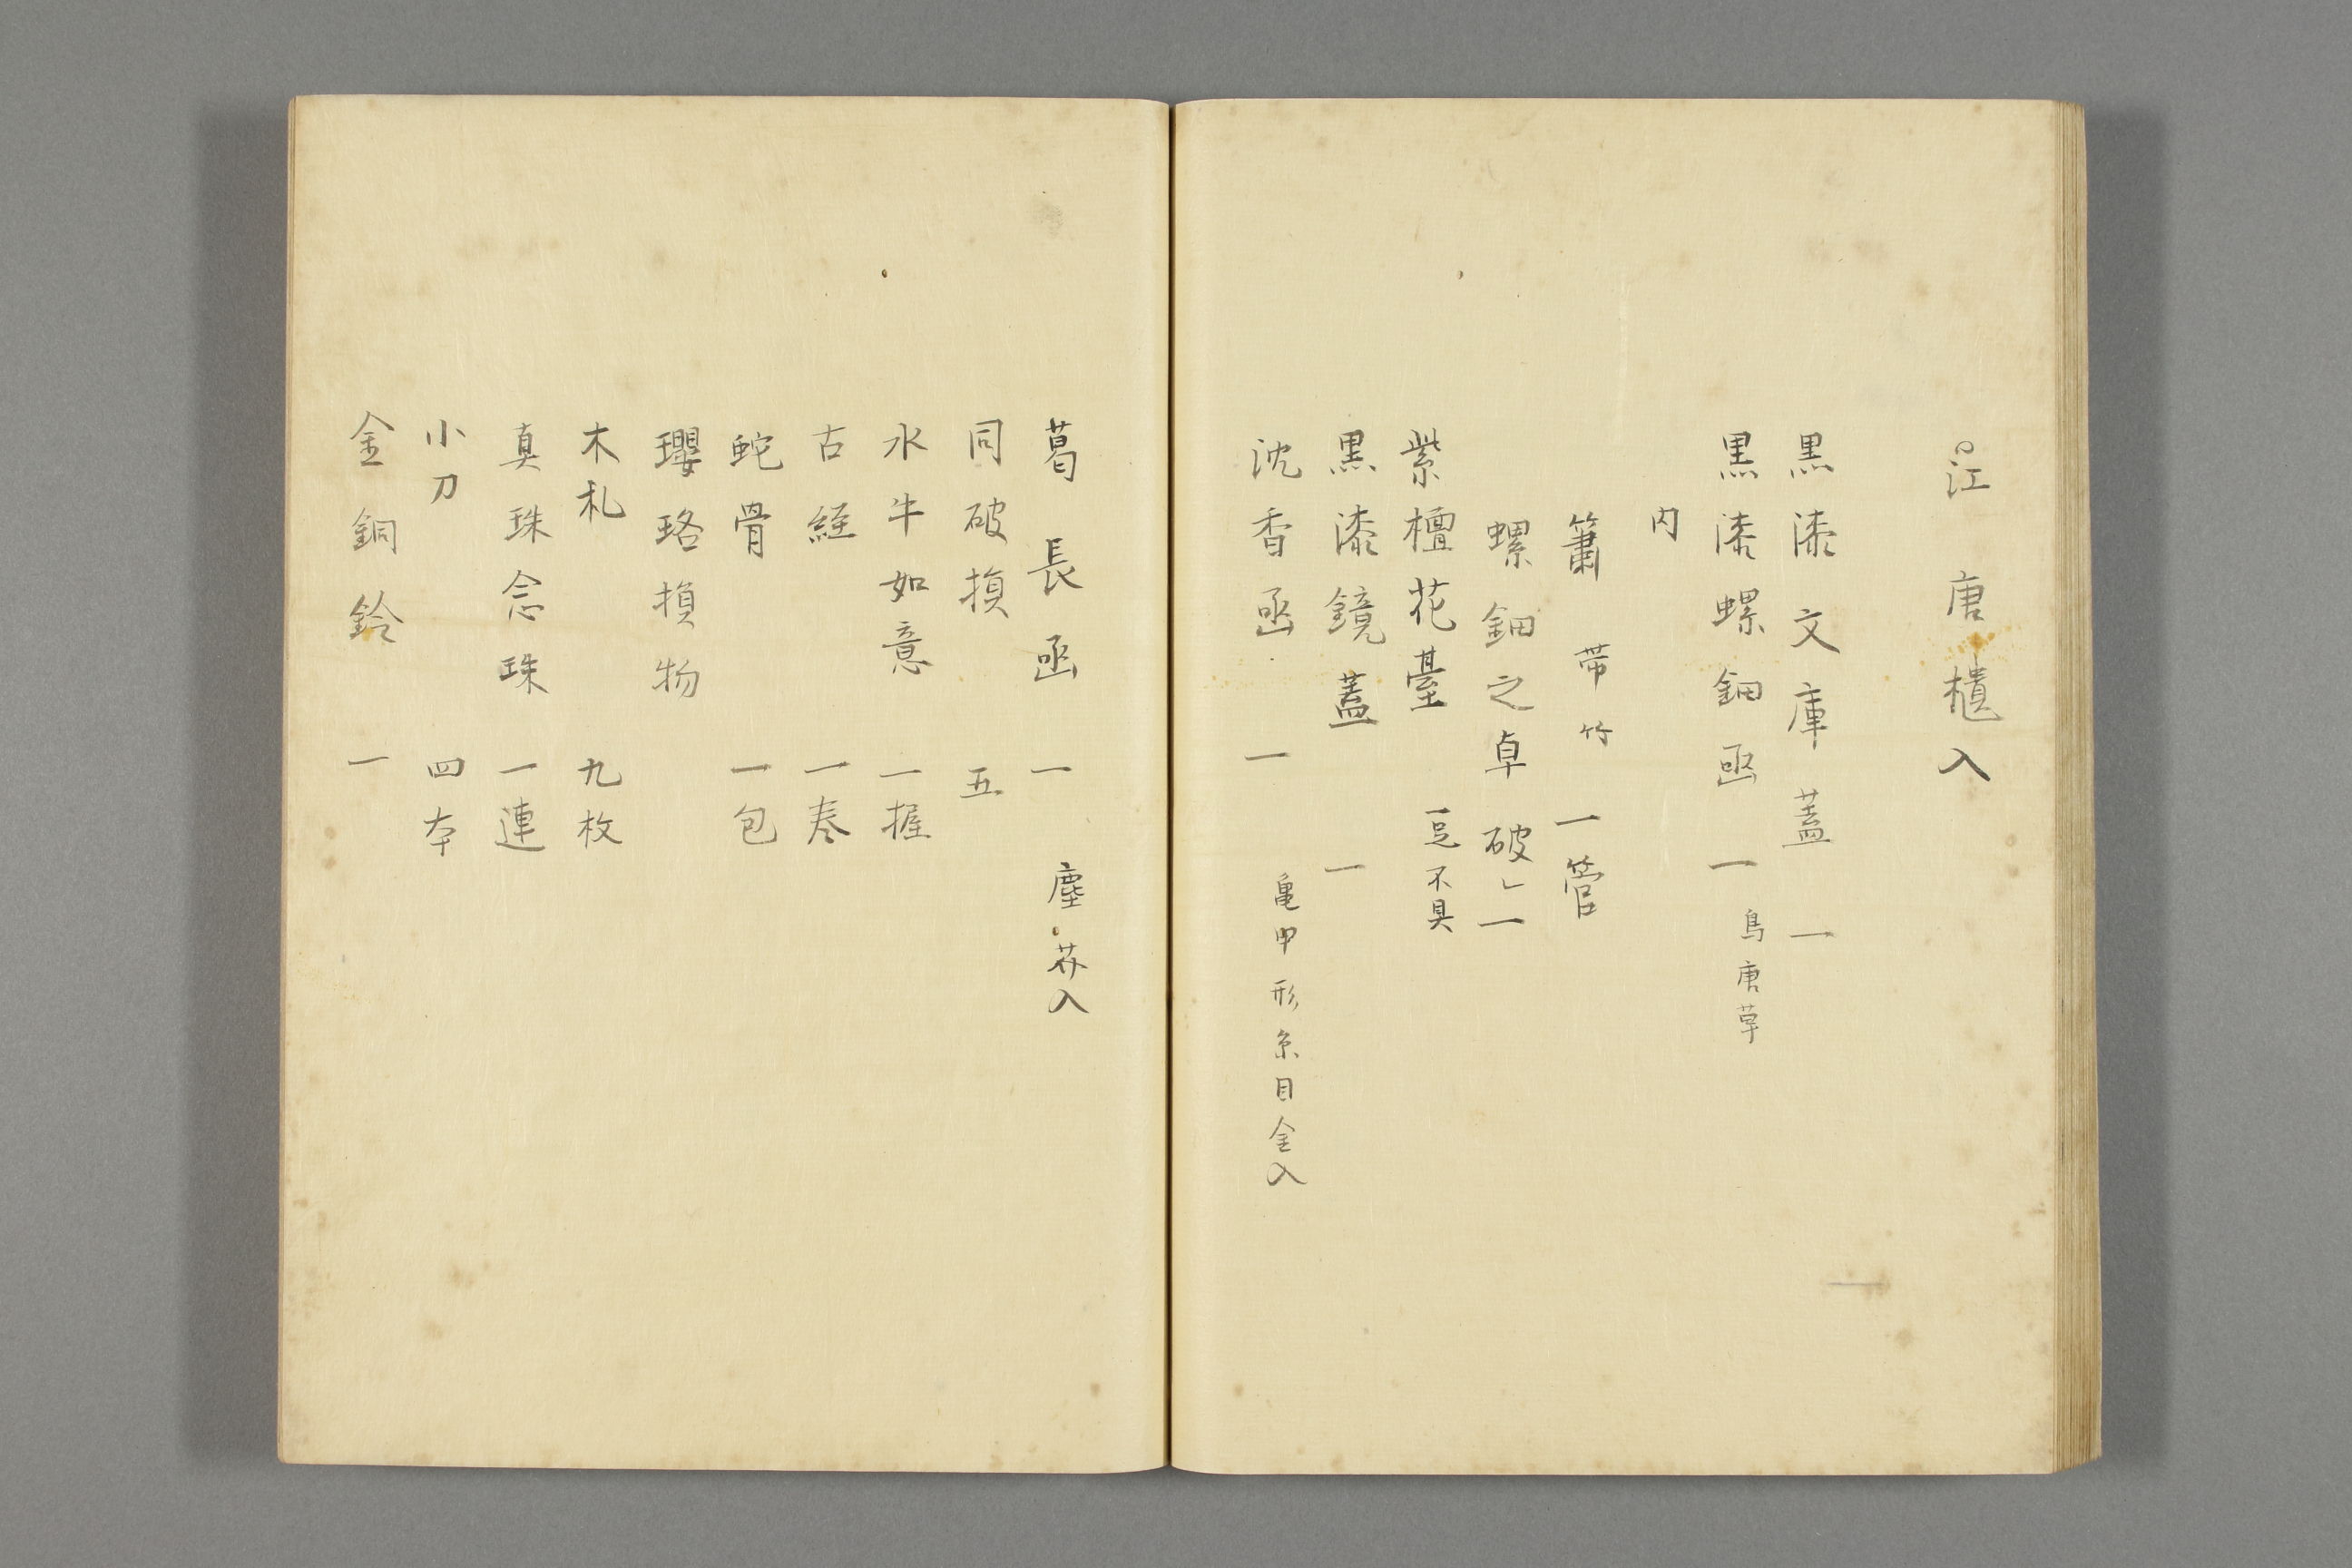 ○江 唐櫃入
黒漆文庫蓋 一
黒漆螺鈿凾 一 鳥唐草
内
簫 帯竹 一管
螺鈿之卓 破レ 一
紫檀花臺 一足不具
黒漆鏡蓋 一
沈香凾 一 亀甲形糸目金入
葛長凾 一 塵芥入
同破損 五
水牛如意 一握
古経 一巻
蛇骨 一包
瓔珞損物
木札 九枚
真珠念珠 一連
小刀 四本
金銅鈴 一